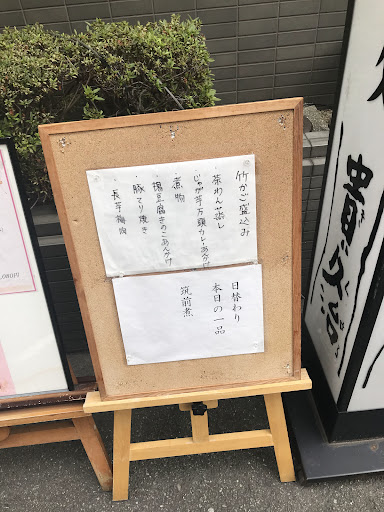 竹かご盛込み
・茶わん蒸し
・じゃが芋万頭カレーあんかけ
・煮物
・揚豆腐きのこあんかけ
・豚てり焼き
・長芋梅肉
日替わり
本日の一品
筑前煮